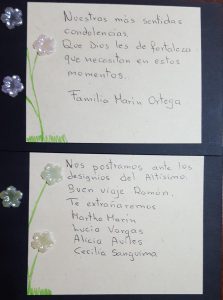 Nuestras más sentidas
condolencias.
Que Dios les de fortaleza
que necesitan en estos
momentos.
Familia Marin Ortega
Nos postramos ante los
designios del Altísimo.
Buen viaje Román,
Te extrañaremos
Martha Marin
Lucia Vargas
Alicia Aviles
Cecilia Sanguima